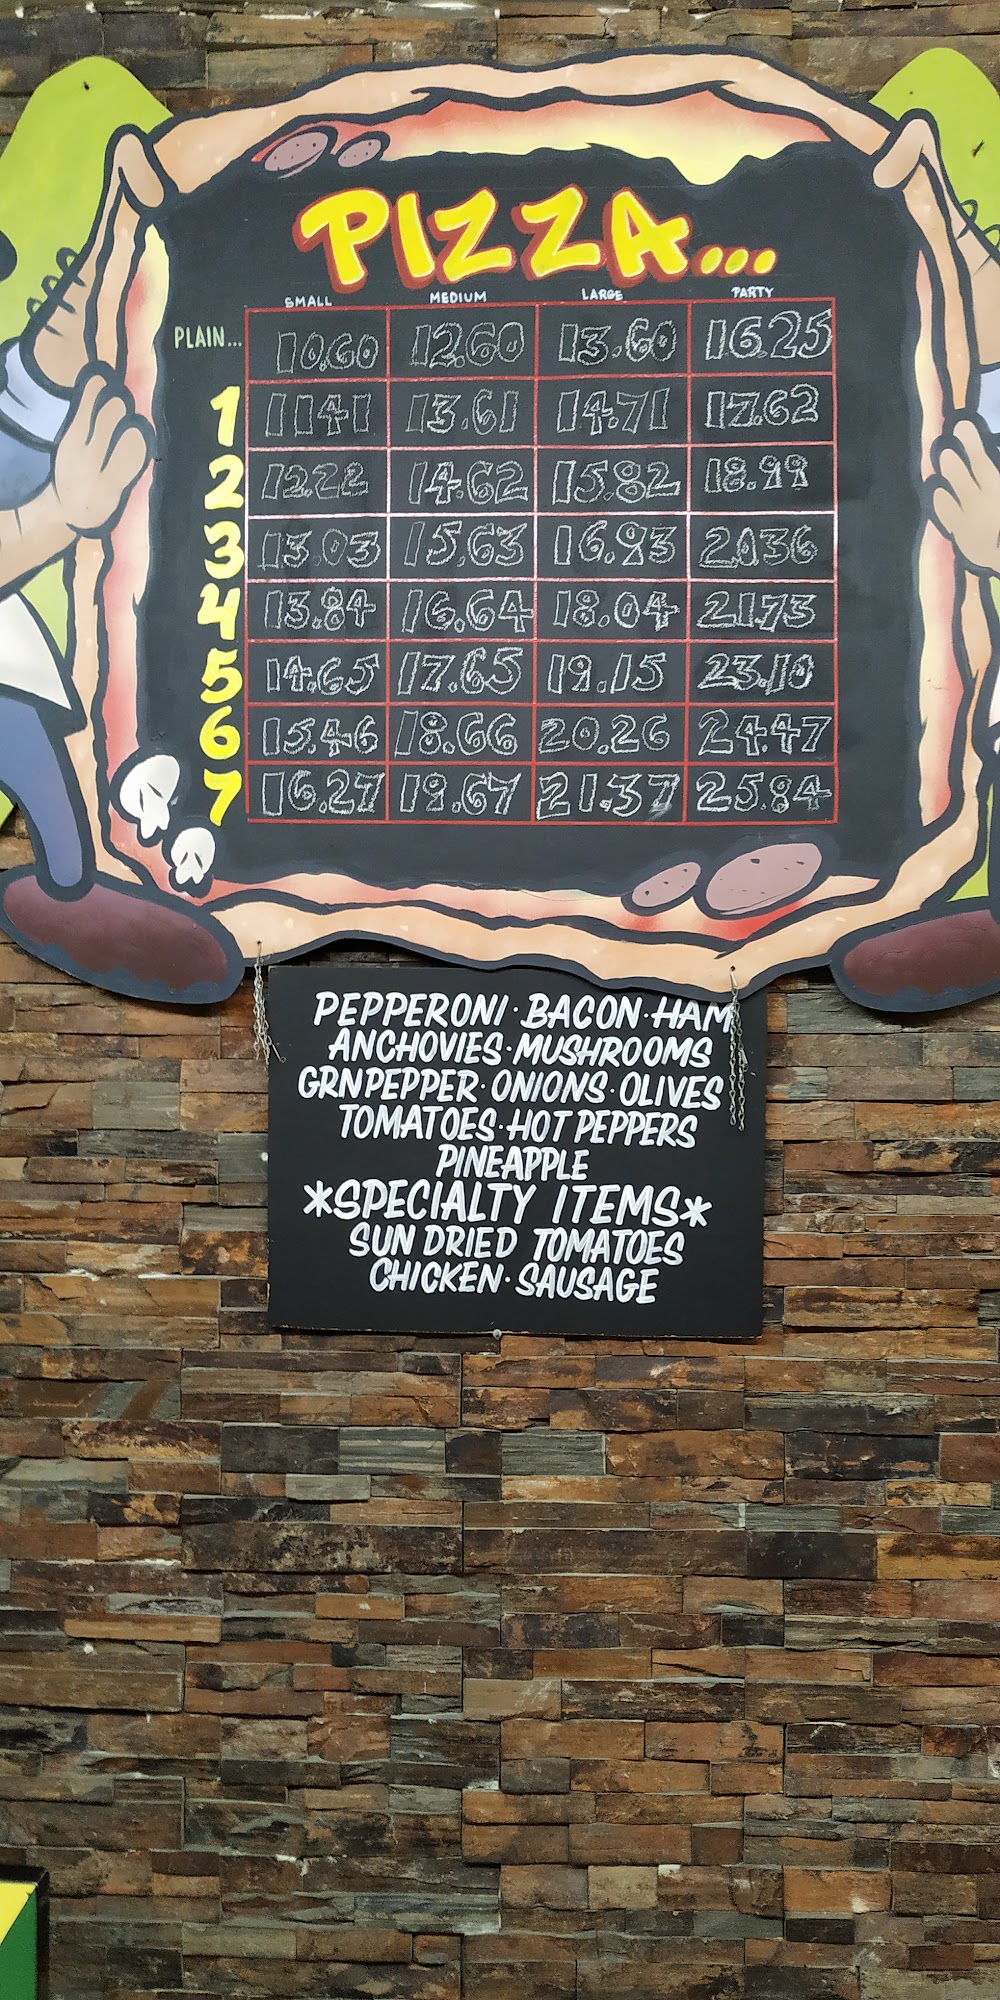 PIZZA...
SMALL MEDIUM LARGE PARTY
PLAIN... 10.60 12.60 13.60 16.25
1 11.41 13.61 14.71 17.62
2 12.22 14.62 15.82 18.99
3 13.03 15.63 16.93 20.36
4 13.84 16.64 18.04 21.73
5 14.65 17.65 19.15 23.10
6 15.46 18.66 20.26 24.47
7 16.27 19.67 21.37 25.84
PEPPERONI · BACON · HAM
ANCHOVIES · MUSHROOMS
GRNPEPPER · ONIONS · OLIVES
TOMATOES · HOT PEPPERS
PINEAPPLE
*SPECIALTY ITEMS*
SUN DRIED TOMATOES
CHICKEN · SAUSAGE